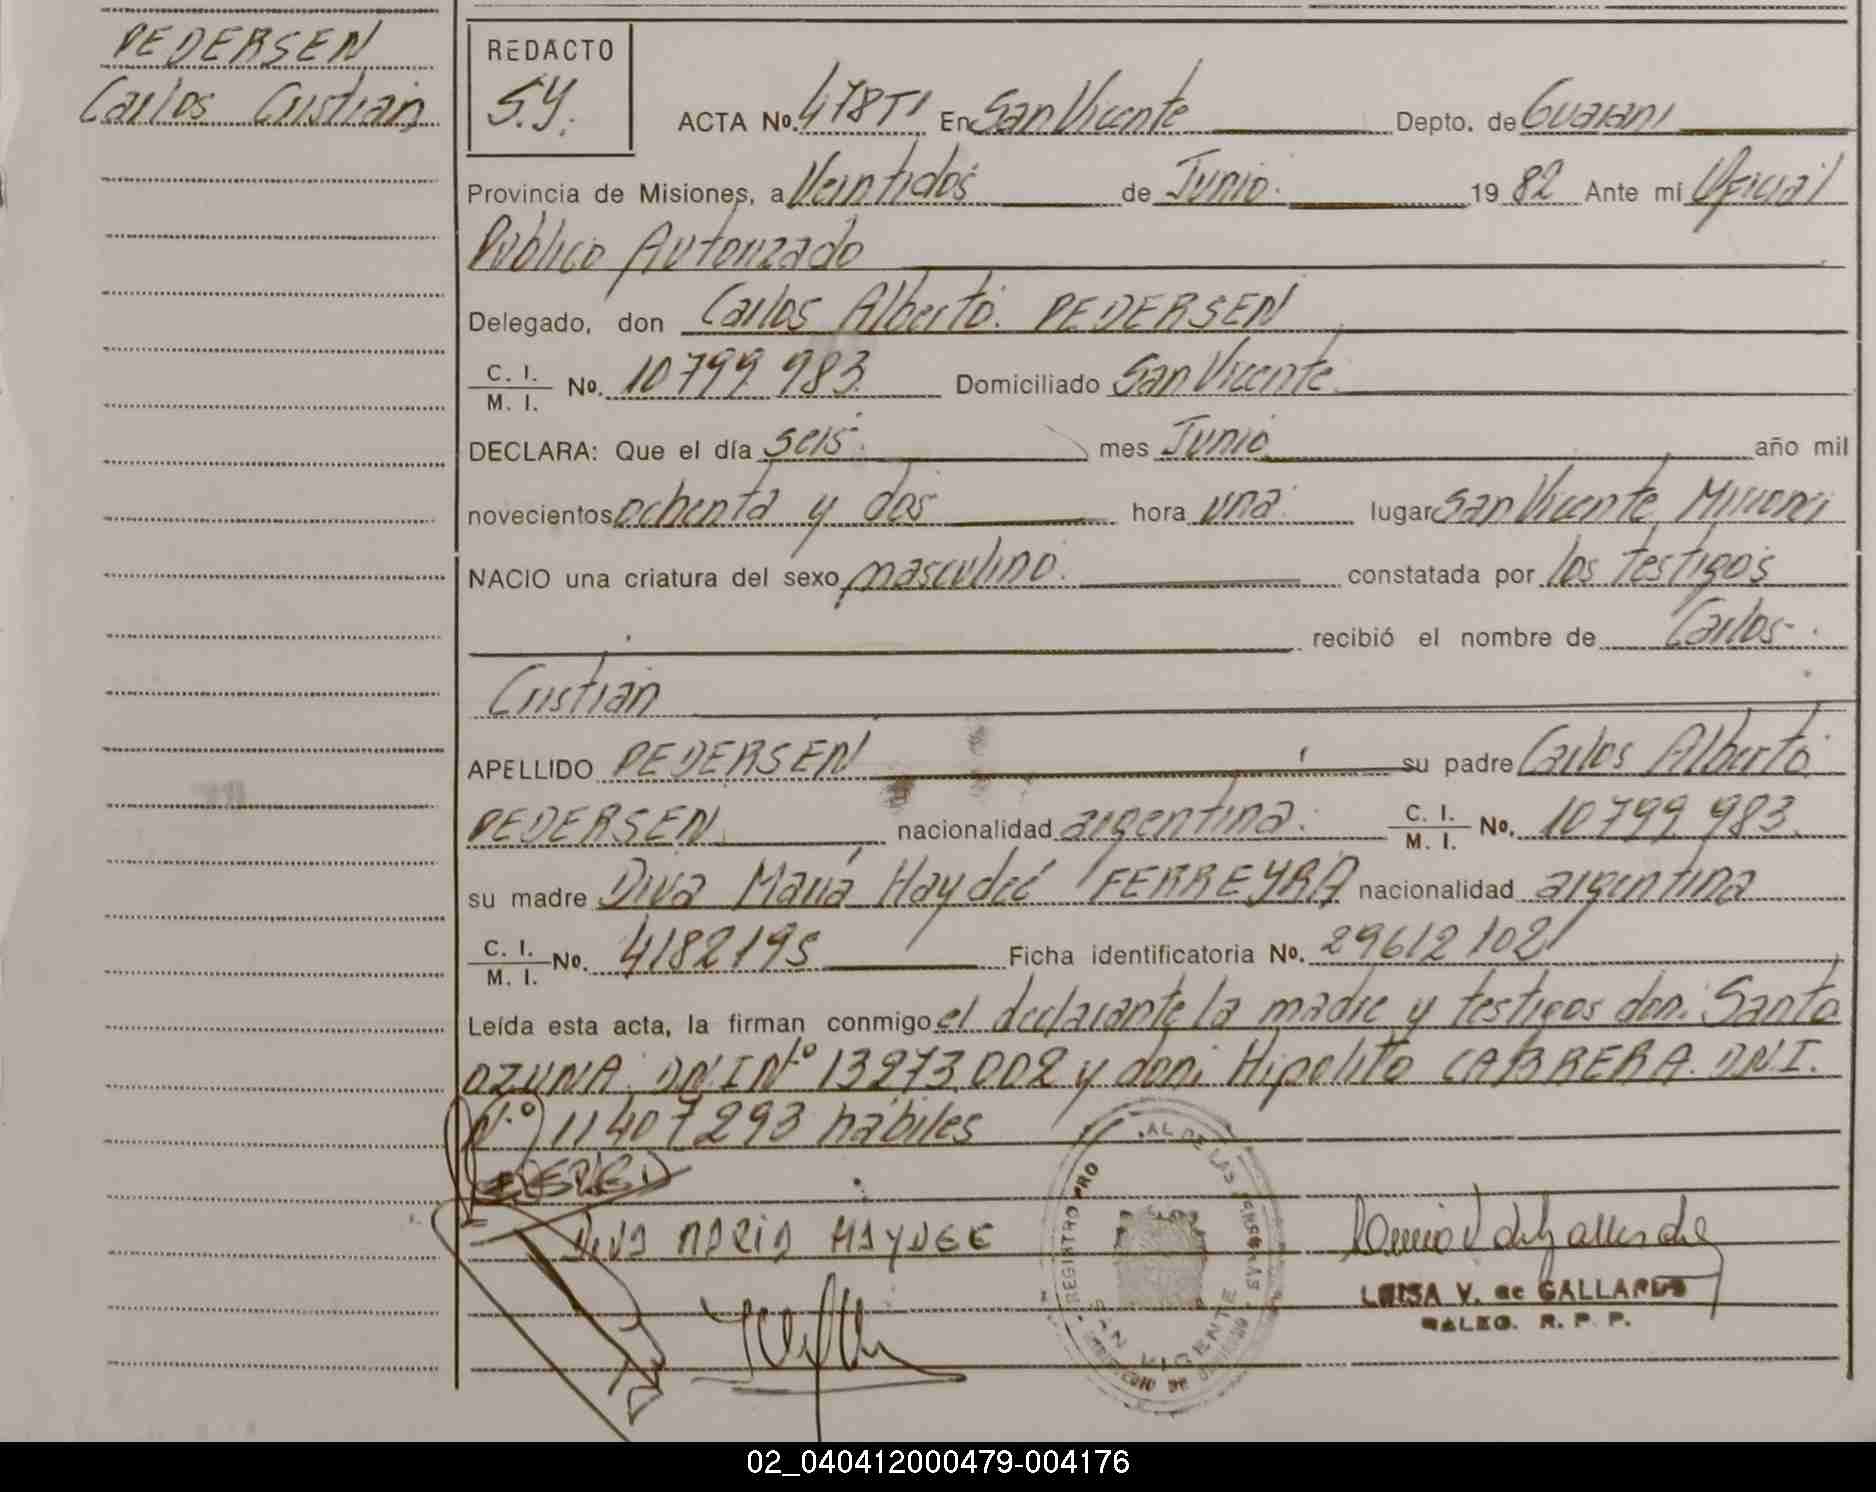 PEDERSEN
Carlos Cristian
REDACTO
S.Y.
ACTA No. 478TI En San Vicente Depto. de Guarani
Provincia de Misiones, a Veintidos de Junio. 1982 Ante mi Oficial
Público Autorizado
Delegado, don Carlos Alberto. PEDERSEN
C. I. / M. I. No. 10799983 Domiciliado San Vicente.
DECLARA: Que el día seis. mes Junio. año mil
novecientos ochenta y dos hora una. lugar San Vicente, Misiones
NACIO una criatura del sexo masculino. constatada por los testigos
recibió el nombre de Carlos
Cristian
APELLIDO PEDERSEN su padre Carlos Alberto
PEDERSEN. nacionalidad argentina. C. I. / M. I. No. 10799983.
su madre Diva María Haydeé FERREYRA nacionalidad argentina
C. I. / M. I. No. 4182195 Ficha identificatoria No. 29612102
Leída esta acta, la firman conmigo el declarante la madre y testigos don: Santo
OZUNA DNI Nº 13273.002 y don: Hipolito CABRERA. DNI.
N.º 11407293 hábiles
DIVA MARIA HAYDEE
REGISTRO PRO AL DE LAS PERSONAS
SAN VICENTE
LUISA V. de GALLARDO
R. P. P.
02_040412000479-004176